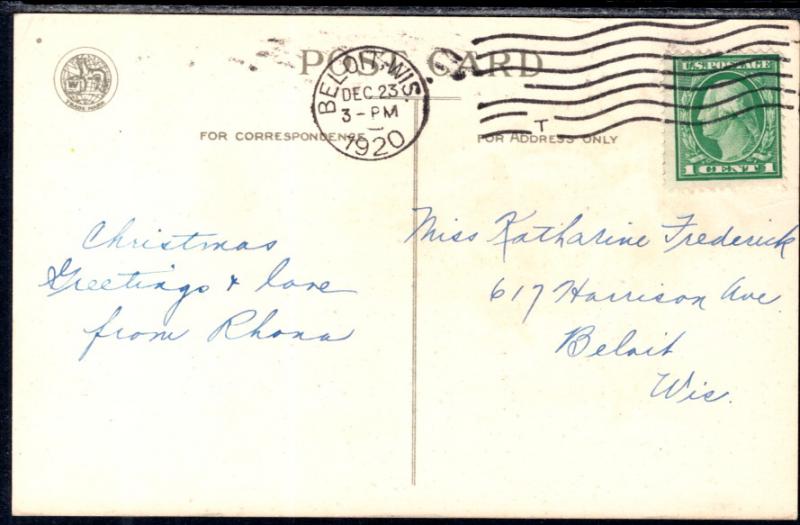 POST CARD
BELOIT, WIS.
DEC 23
3-PM
1920
U.S. POSTAGE
1 CENT 1
T
FOR CORRESPONDENCE
FOR ADDRESS ONLY
Christmas
Greetings & love
from Rhona
Miss Katharine Frederick
617 Harrison Ave
Beloit
Wis.